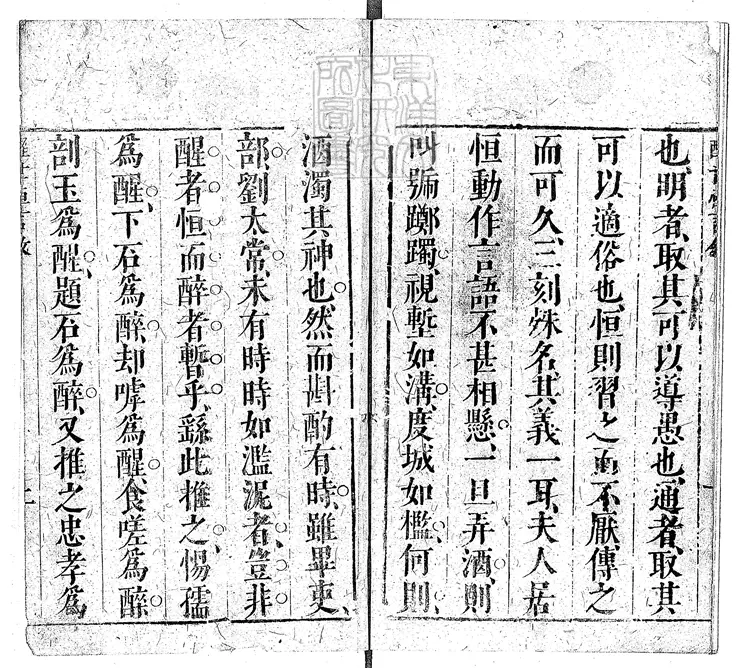 也明者、取其可以導愚也、通者、取其
可以適俗也、恒則習之而不厭、傳之
而可久、三刻殊名、其義一耳、夫人居
恒動作言語不甚相懸、一旦弄酒、則
叫號躑躅、視塹如溝、度城如檻、何則、
酒濁其神也、然而斟酌有時、雖畢吏、
部、劉太常、未有時時如濫泥者、豈非
醒者恒而醉者暫乎、繇此推之、惕孺
為醒、下石為醉、却嘑為醒、食嗟為醉、
剖玉為醒、題石為醉、又推之忠孝為